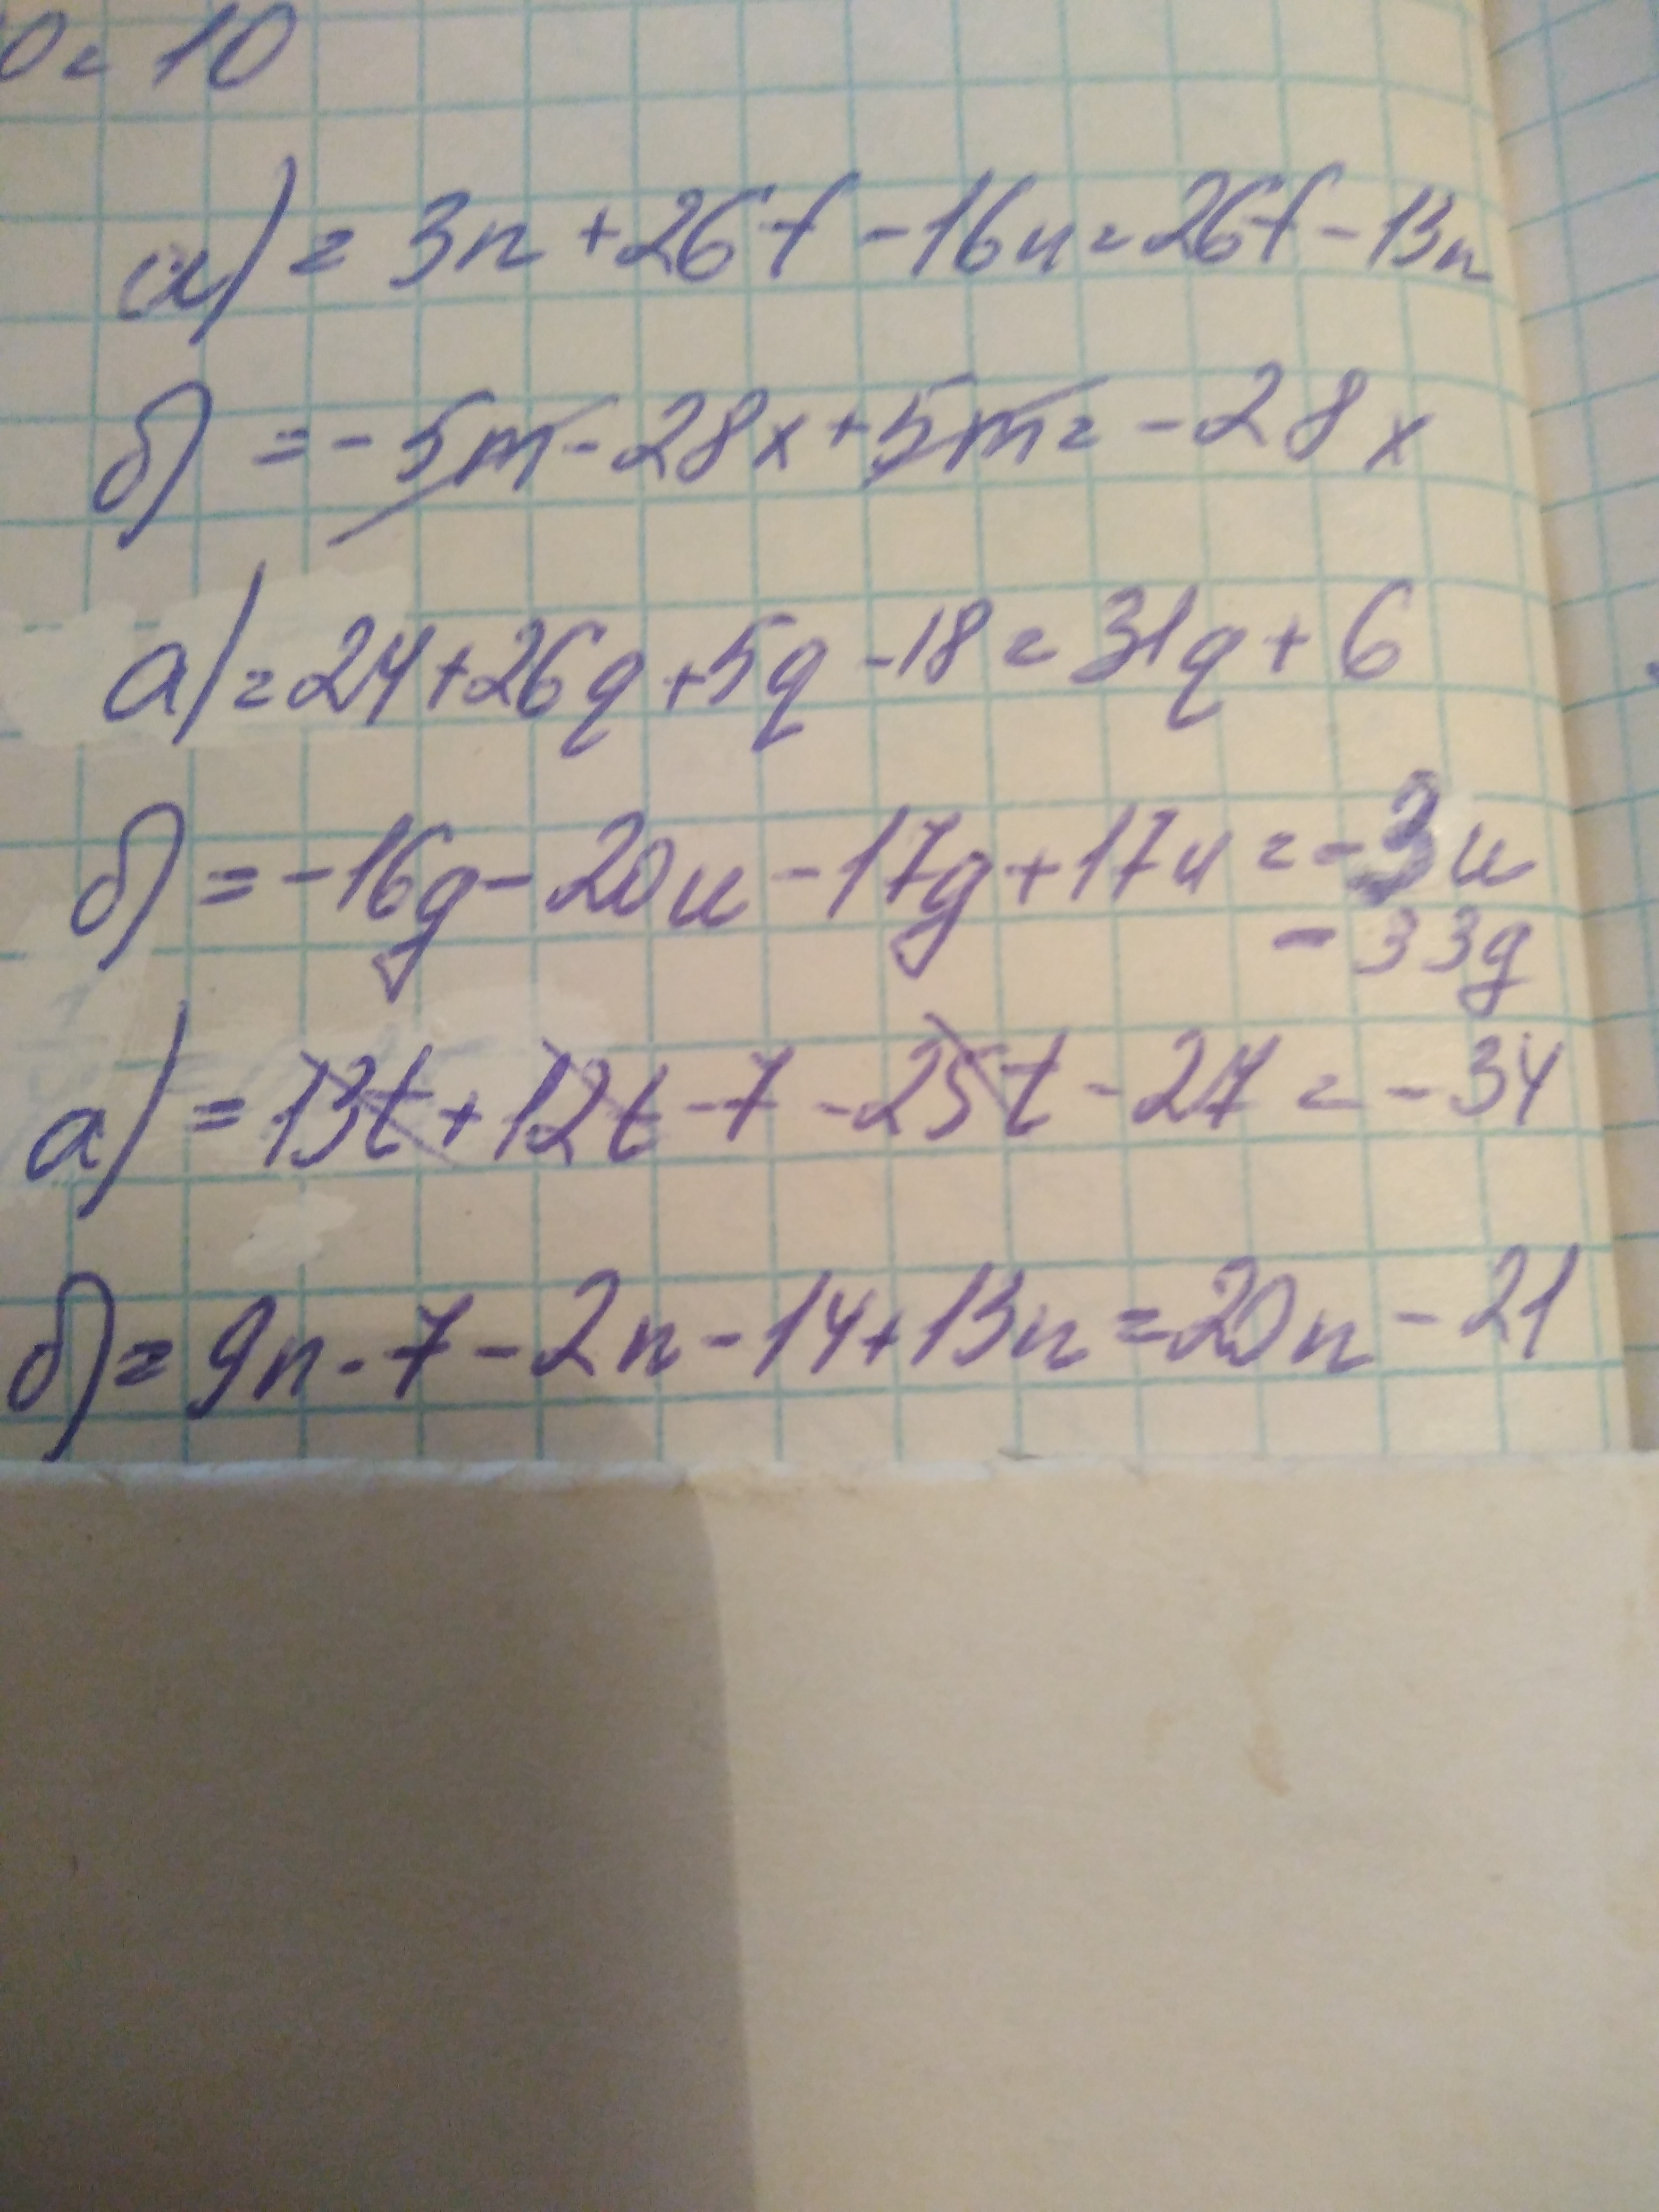 0 = 10
а) = 3n + 26f - 16n = 26f - 13n
б) = - 5m - 28x + 5m = - 28x
а) = 24 + 26q + 5q - 18 = 31q + 6
б) = - 16g - 20u - 17g + 17u = - 3u
- 33g
а) = 13t + 12t - 7 - 25t - 27 = - 34
б) = 9n - 7 - 2n - 14 + 13n = 20n - 21